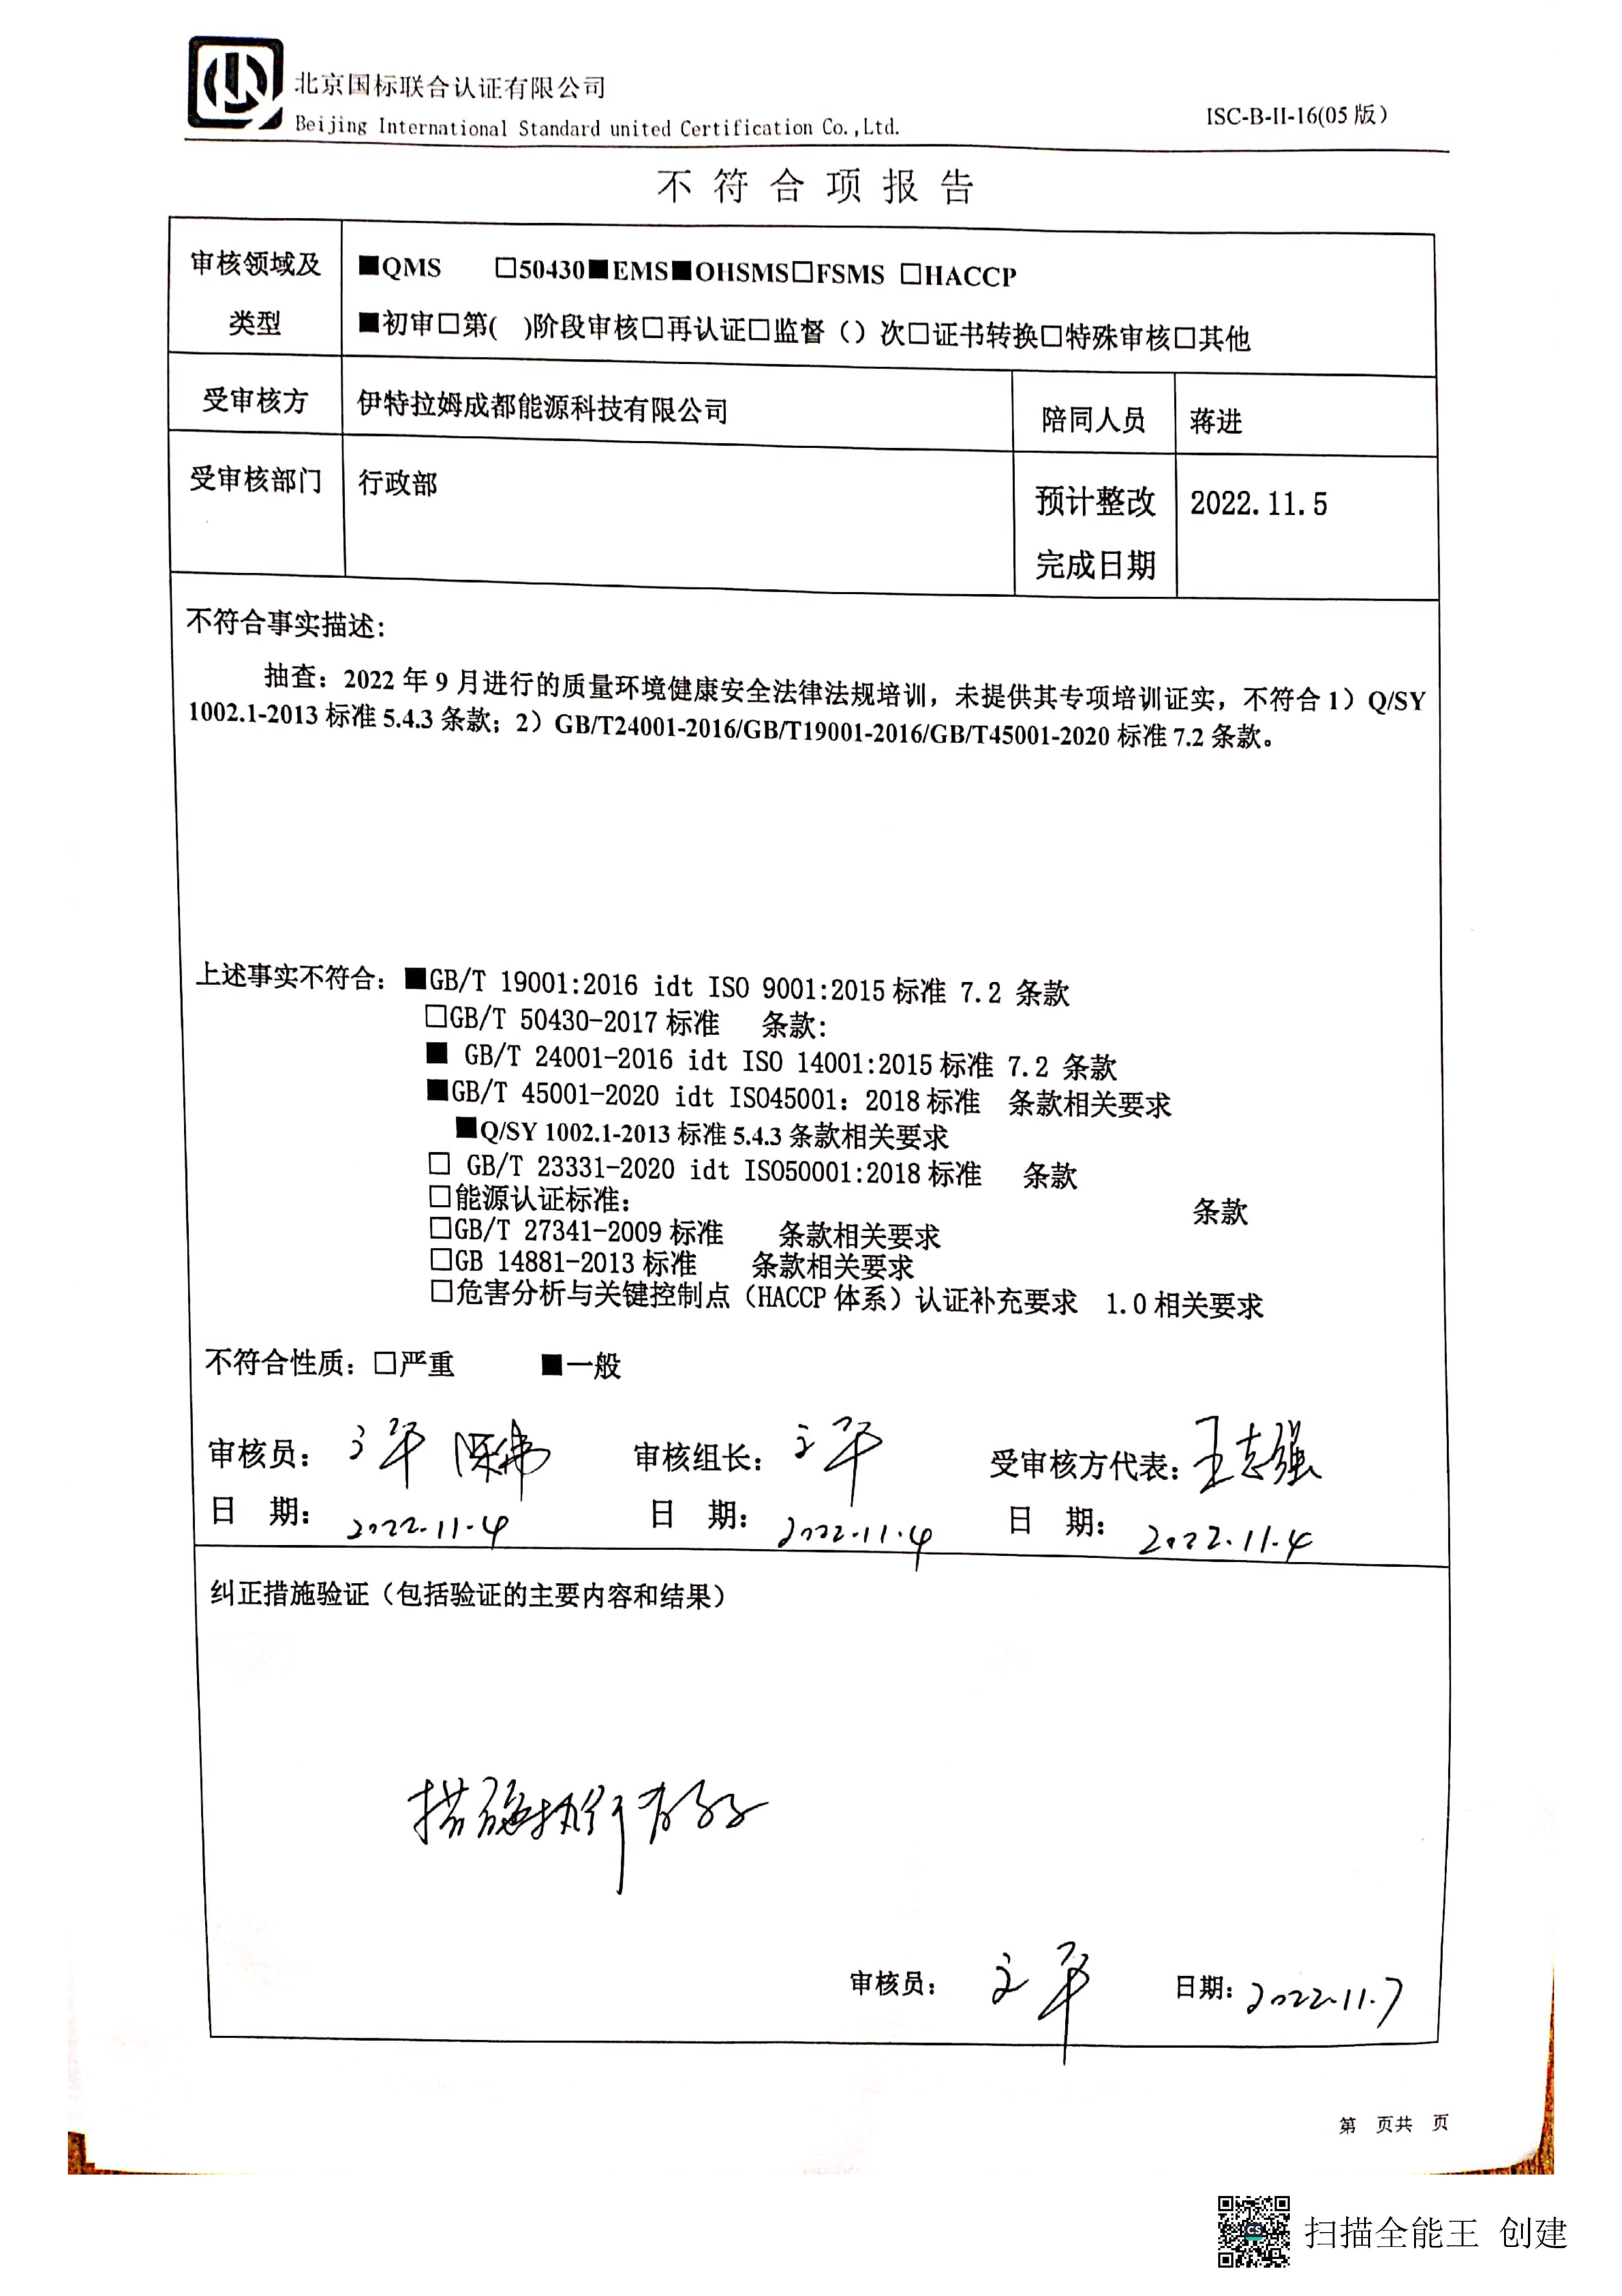 北京国标联合认证有限公司
Beijing International Standard united Certification Co.,Ltd.
ISC-B-II-16(05 版)
不符合项报告
审核领域及类型
■QMS □50430■EMS■OHSMS□FSMS □HACCP
■初审□第( )阶段审核□再认证□监督()次□证书转换□特殊审核□其他
受审核方 伊特拉姆成都能源科技有限公司 陪同人员 蒋进
受审核部门 行政部 预计整改完成日期 2022.11.5
不符合事实描述:
抽查：2022 年 9 月进行的质量环境健康安全法律法规培训，未提供其专项培训证实，不符合 1）Q/SY
1002.1-2013 标准 5.4.3 条款；2）GB/T24001-2016/GB/T19001-2016/GB/T45001-2020 标准 7.2 条款。
上述事实不符合：■GB/T 19001:2016 idt ISO 9001:2015 标准 7.2 条款
□GB/T 50430-2017 标准 条款:
■ GB/T 24001-2016 idt ISO 14001:2015 标准 7.2 条款
■GB/T 45001-2020 idt ISO45001：2018 标准 条款相关要求
■Q/SY 1002.1-2013 标准 5.4.3 条款相关要求
□ GB/T 23331-2020 idt ISO50001:2018 标准 条款
□能源认证标准: 条款
□GB/T 27341-2009 标准 条款相关要求
□GB 14881-2013 标准 条款相关要求
□危害分析与关键控制点（HACCP 体系）认证补充要求 1.0 相关要求
不符合性质：□严重 ■一般
审核员： 文平 陈伟 审核组长： 文平 受审核方代表： 王志强
日 期： 2022.11.4 日 期： 2022.11.4 日 期： 2022.11.4
纠正措施验证（包括验证的主要内容和结果）
措施执行有效
审核员： 文平 日期: 2022.11.7
第 页共 页
CS
扫描全能王 创建